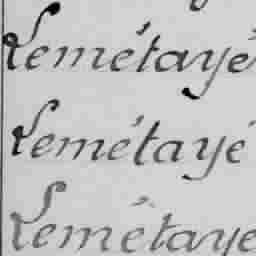 Lemétayé
Lemétayé
Lemétaye